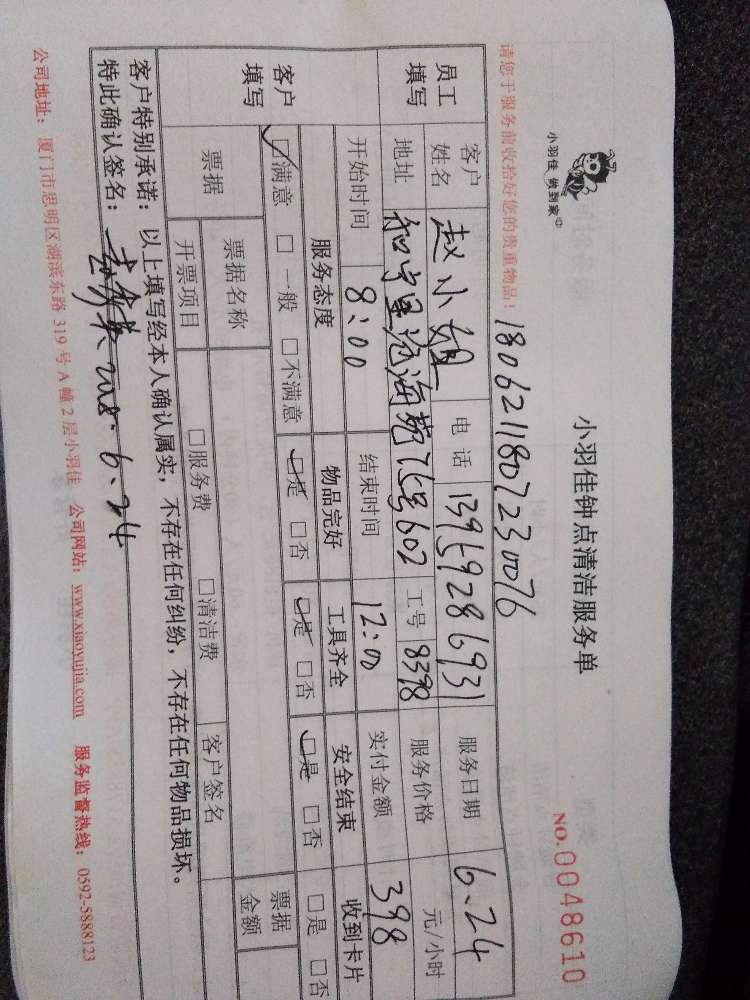 小羽佳 做到家
小羽佳钟点清洁服务单
NO.0048610
请您于服务前收拾好您的贵重物品！
1806211807230076
员工填写 客户姓名 赵小姐 电话 13959286931 服务日期 6.24
地址 和宁里沧海苑 号602 工号 8398 服务价格 元/小时
客户填写 开始时间 8:00 结束时间 12:00 实付金额 398
服务态度 物品完好 工具齐全 安全结束 收到卡片
☑满意 □一般 □不满意 ☑是 □否 ☑是 □否 ☑是 □否 □是 □否
票据 票据名称 票据金额
开票项目 □服务费 □清洁费 客户签名
客户特别承诺：以上填写经本人确认属实，不存在任何纠纷，不存在任何物品损坏。
特此确认签名： 6.24
公司地址：厦门市思明区湖滨东路319号A幢2层小羽佳 公司网站：www.xiaoyujia.com 服务监督热线：0592-5888123